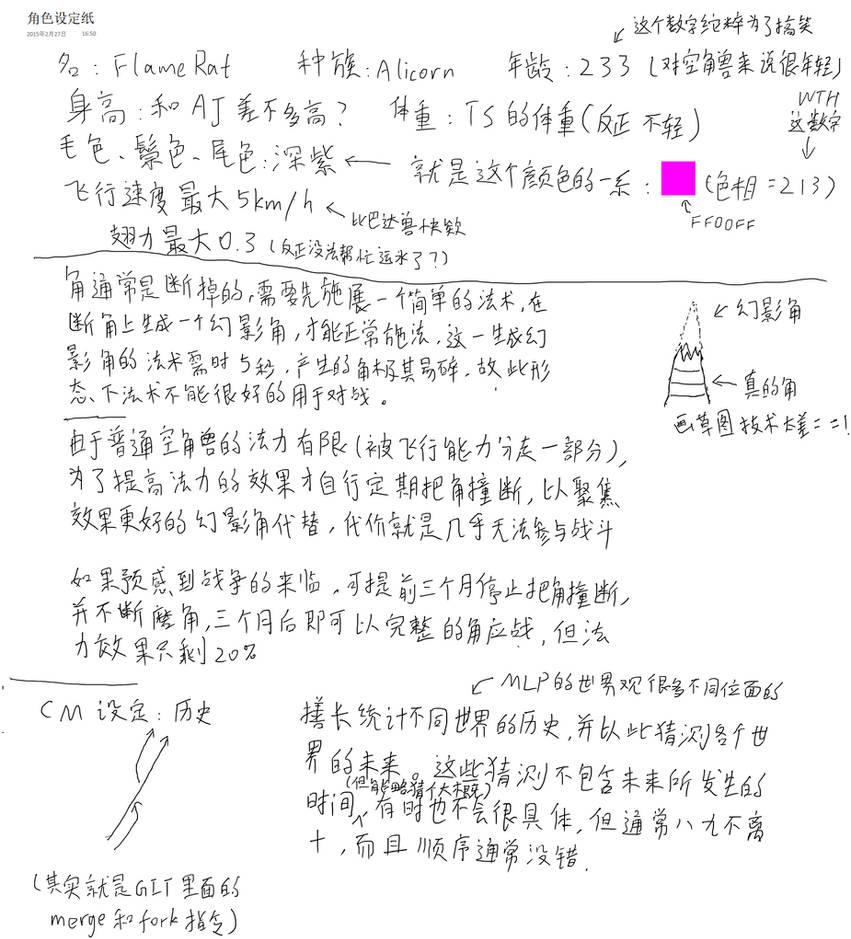 角色设定纸
2015年2月27日 16:50
这个数字纯粹为了搞笑
名：FlameRat 种族：Alicorn 年龄：233（对空角兽来说很年轻）
身高：和AJ差不多高？ 体重：TS的体重（反正不轻）
WTH
这数字
毛色、鬃色、尾色：深紫 就是这个颜色的一系：（色相=213）
FF00FF
飞行速度最大5km/h
比巴达兽快欸
翅力最大0.3（反正没法帮忙运水了？）
角通常是断掉的，需要先施展一个简单的法术，在
断角上生成一个幻影角，才能正常施法，这一生成幻
影角的法术需时5秒，产生的角极其易碎，故此形
态下法术不能很好的用于对战。
幻影角
真的角
画草图技术太差==！
由于普通空角兽的法力有限（被飞行能力分走一部分），
为了提高法力的效果才自行定期把角撞断，以聚焦
效果更好的幻影角代替，代价就是几乎无法参与战斗
如果预感到战争的来临，可提前三个月停止把角撞断，
并不断磨角，三个月后即可以完整的角应战，但法
力效果只剩20%
MLP的世界观很多不同位面的
CM设定：历史
擅长统计不同世界的历史，并以此猜测各个世
界的未来。这些猜测不包含未来所发生的
（但能略猜个大概）
时间，有时也不会很具体，但通常八九不离
十，而且顺序通常没错．
（其实就是GIT里面的
merge和fork指令）